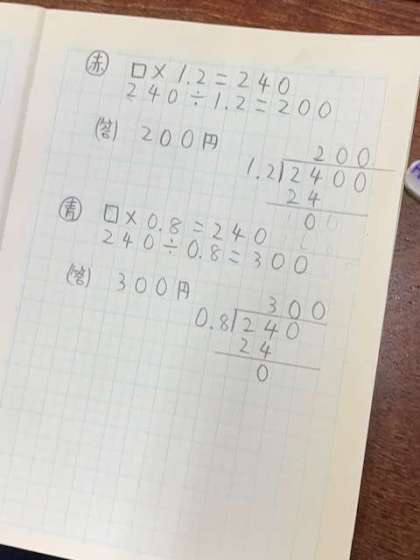 赤 □×1.2=240
240÷1.2=200
(答) 200円
200
1.2)2400
24
0
青 □×0.8=240
240÷0.8=300
(答) 300円
300
0.8)240
24
0